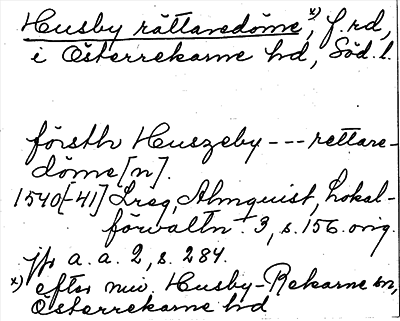 Husby rättaredöme x), f.rd,
i Österrekarne hd, Söd. l.
försth Huszeby --- rettare-
döme[n].
1540[-41] Lreg, Almquist, Lokal-
förvaltn. 3, s. 156. orig.
jfr a. a. 2, s. 284.
x) efter nuv. Husby-Rekarne sn,
Österrekarne hd